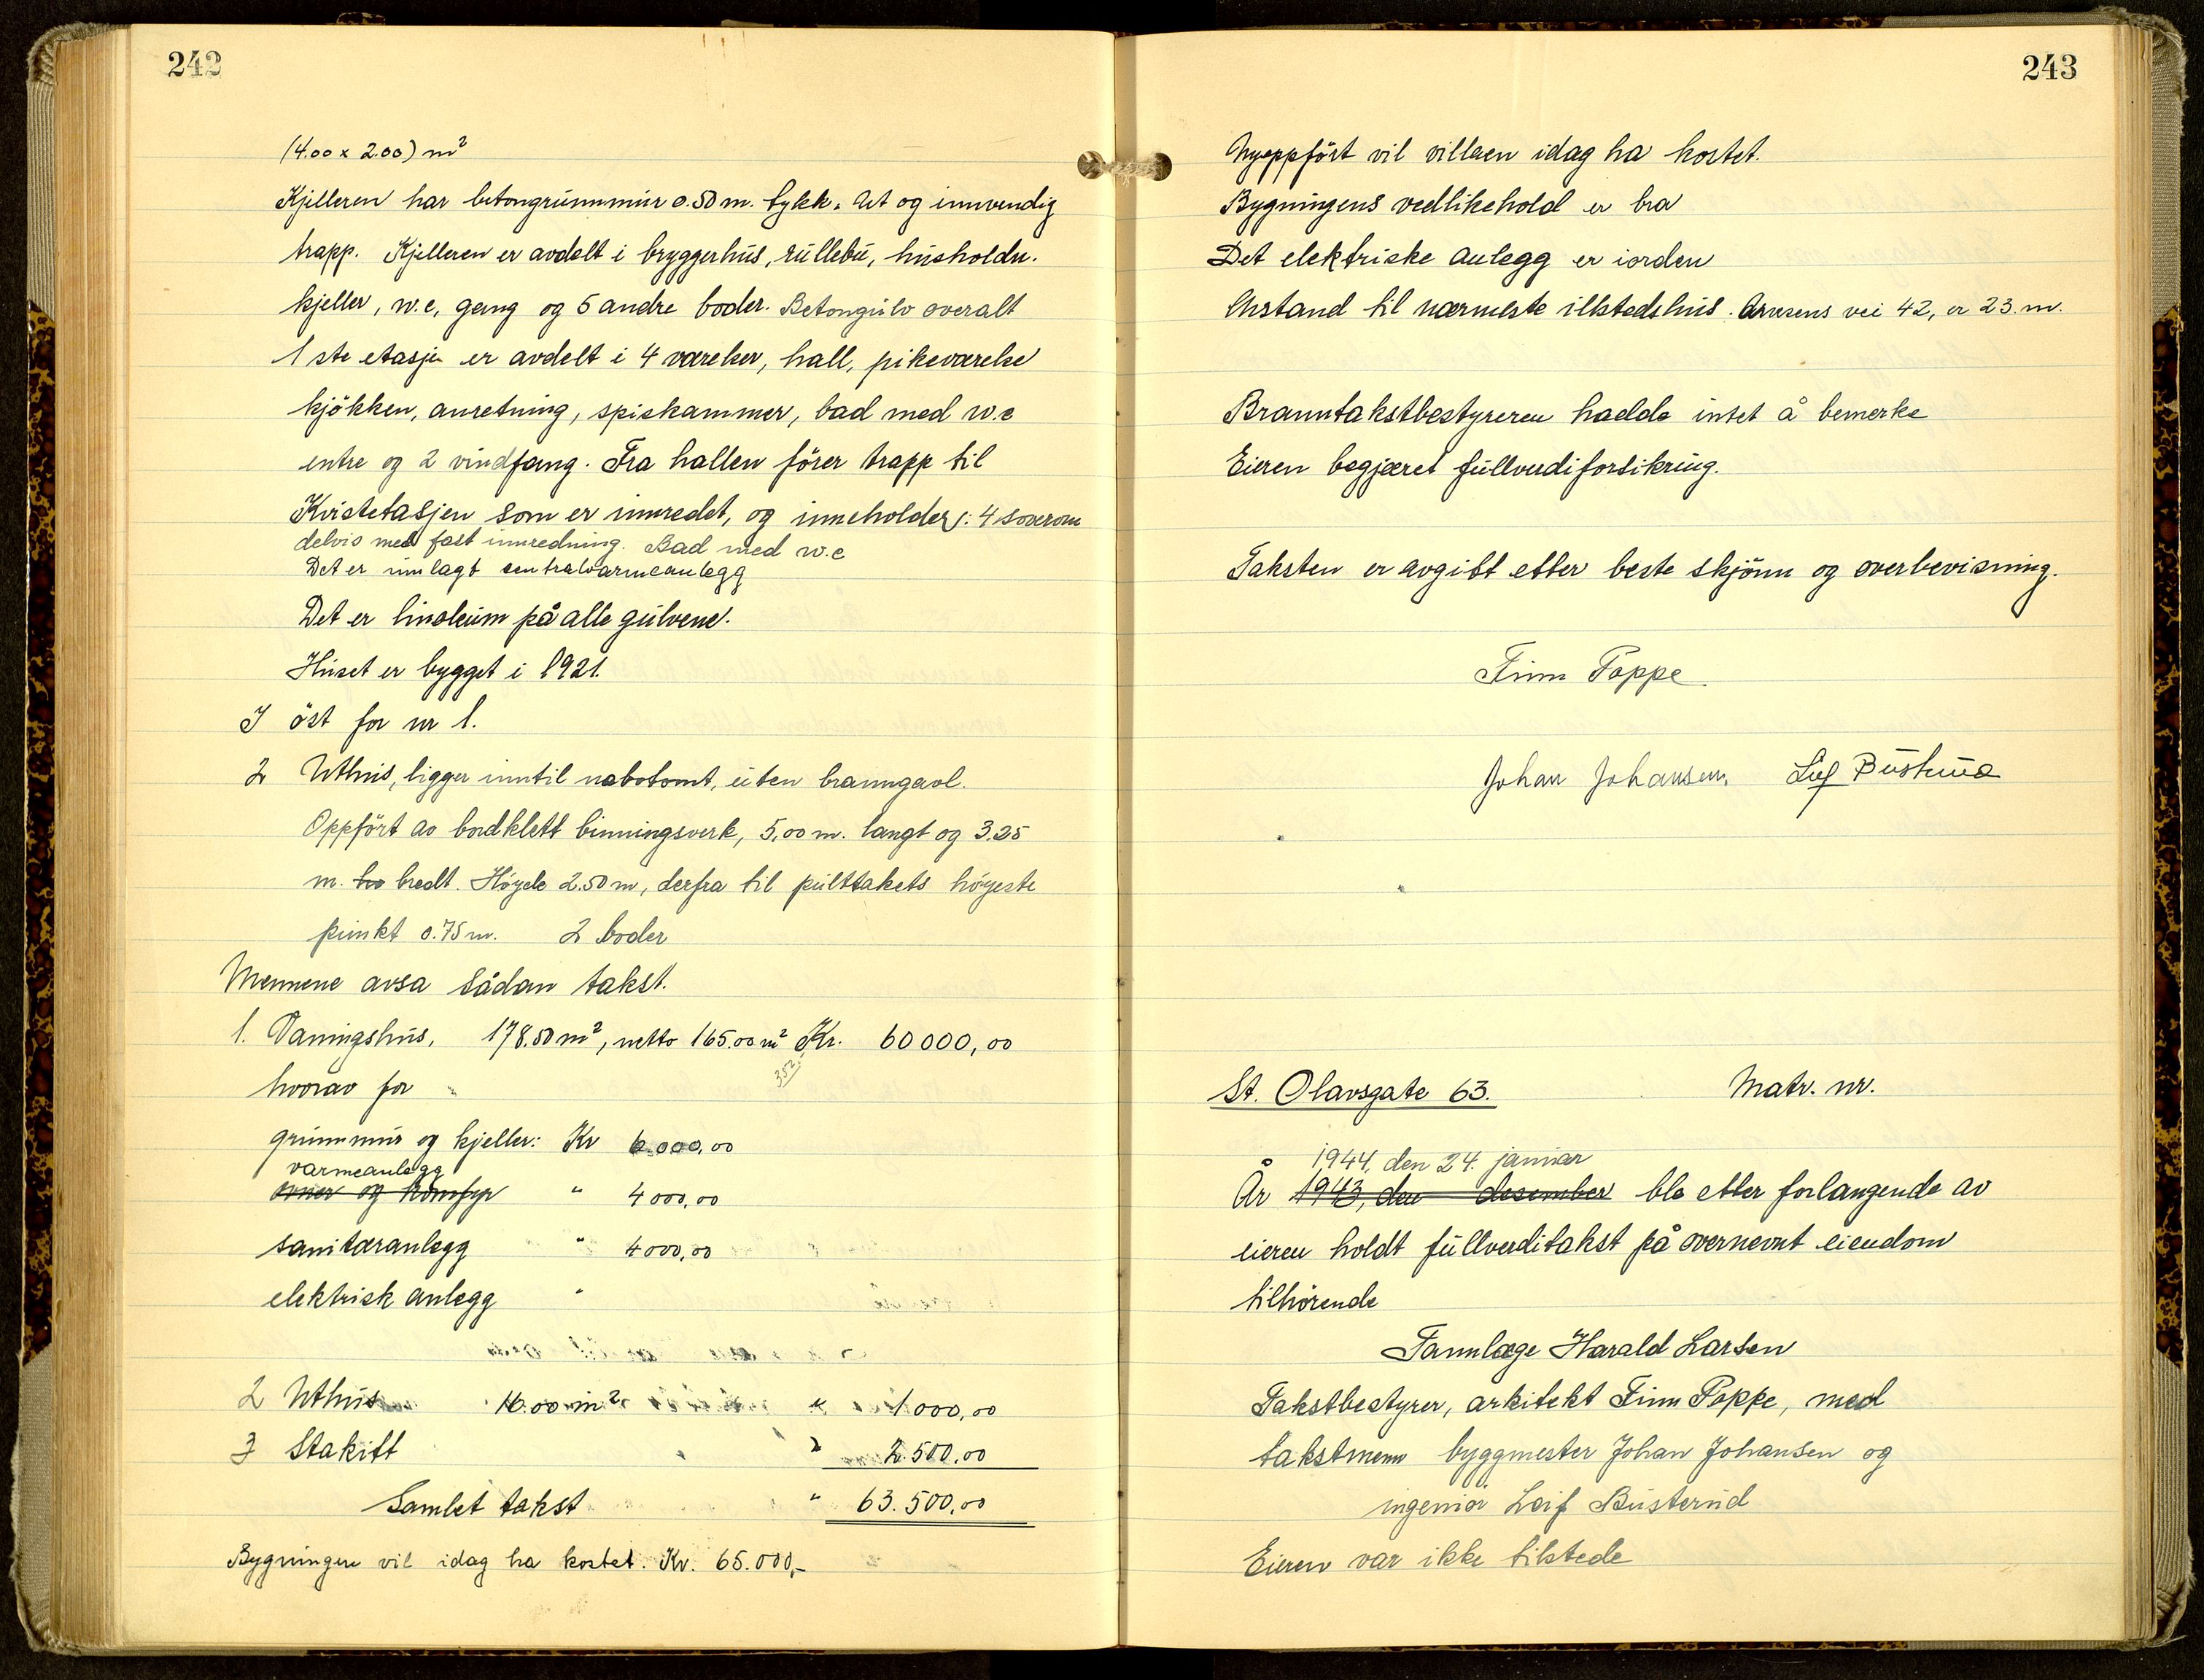 242
(4.00 x 2.00) m²
Kjelleren har betongrunnmur 0.50 m. tykk. Ut og innvendig
trapp. Kjelleren er avdelt i bryggerhus, rullebu, husholdn.
kjeller, w.c, gang og 5 andre boder. Betongulv overalt
1 ste etasje er avdelt i 4 værelser, hall, pikeværelse
kjökken, anretning, spiskammer, bad med w.c
entre og 2 vindfang. Fra hallen förer trapp til
Kvistetasjen som er innredet, og inneholder: 4 soverom
delvis med fast innredning. Bad med w.c
Det er innlagt sentralvarmeanlegg
Det er linoleum på alle gulvene.
Huset er bygget i 1921.
I öst for nr 1.
2 Uthus, ligger inntil nabotomt, uten branngavl.
Oppfört av bordklett binningsverk, 5,00 m. langt og 3.25
m. ho bredt. Höyde 2.50 m, derfra til pulttakets höyeste
punkt 0.75 m. 2 boder
Mennene avsa sådan takst.
1. Vaningshus, 178.50 m², netto 165.00 m² Kr. 60000,00
352
hvorav for
grunnmur og kjeller: Kr 6.000,00
varmeanlegg
ovner og komfyr " 4000,00
sanitæranlegg " 4000,00
elektrisk anlegg "
2 Uthus 16.00 m² " 1000,00
3 Stakitt " 2.500,00
Samlet takst " 63.500,00
Bygningen vil idag ha kostet. Kr. 65.000,-
243
Nyoppfört vil villaen idag ha kostet.
Bygningens vedlikehold er bra
Det elektriske anlegg er iorden
Avstand til nærmeste illstedshus. Arvesens vei 42, er 23. m.
Branntakstbestyreren hadde intet å bemerke
Eieren begjæret fullverdiforsikring.
Taksten er avgitt etter beste skjönn og overbevisning.
Finn Poppe.
Johan Johansen. Leif Busterud
St. Olavsgate 63. Matr. nr.
1944, den 24. januar
År 1943, den desember ble etter forlangende av
eieren holdt fullverditakst på overnevnt eiendom
tilhörende
Tannlæge Harald Larsen
Takstbestyrer, arkitekt Finn Poppe, med
takstmenn byggmester Johan Johansen og
ingeniör Leif Busterud
Eieren var ikke tilstede